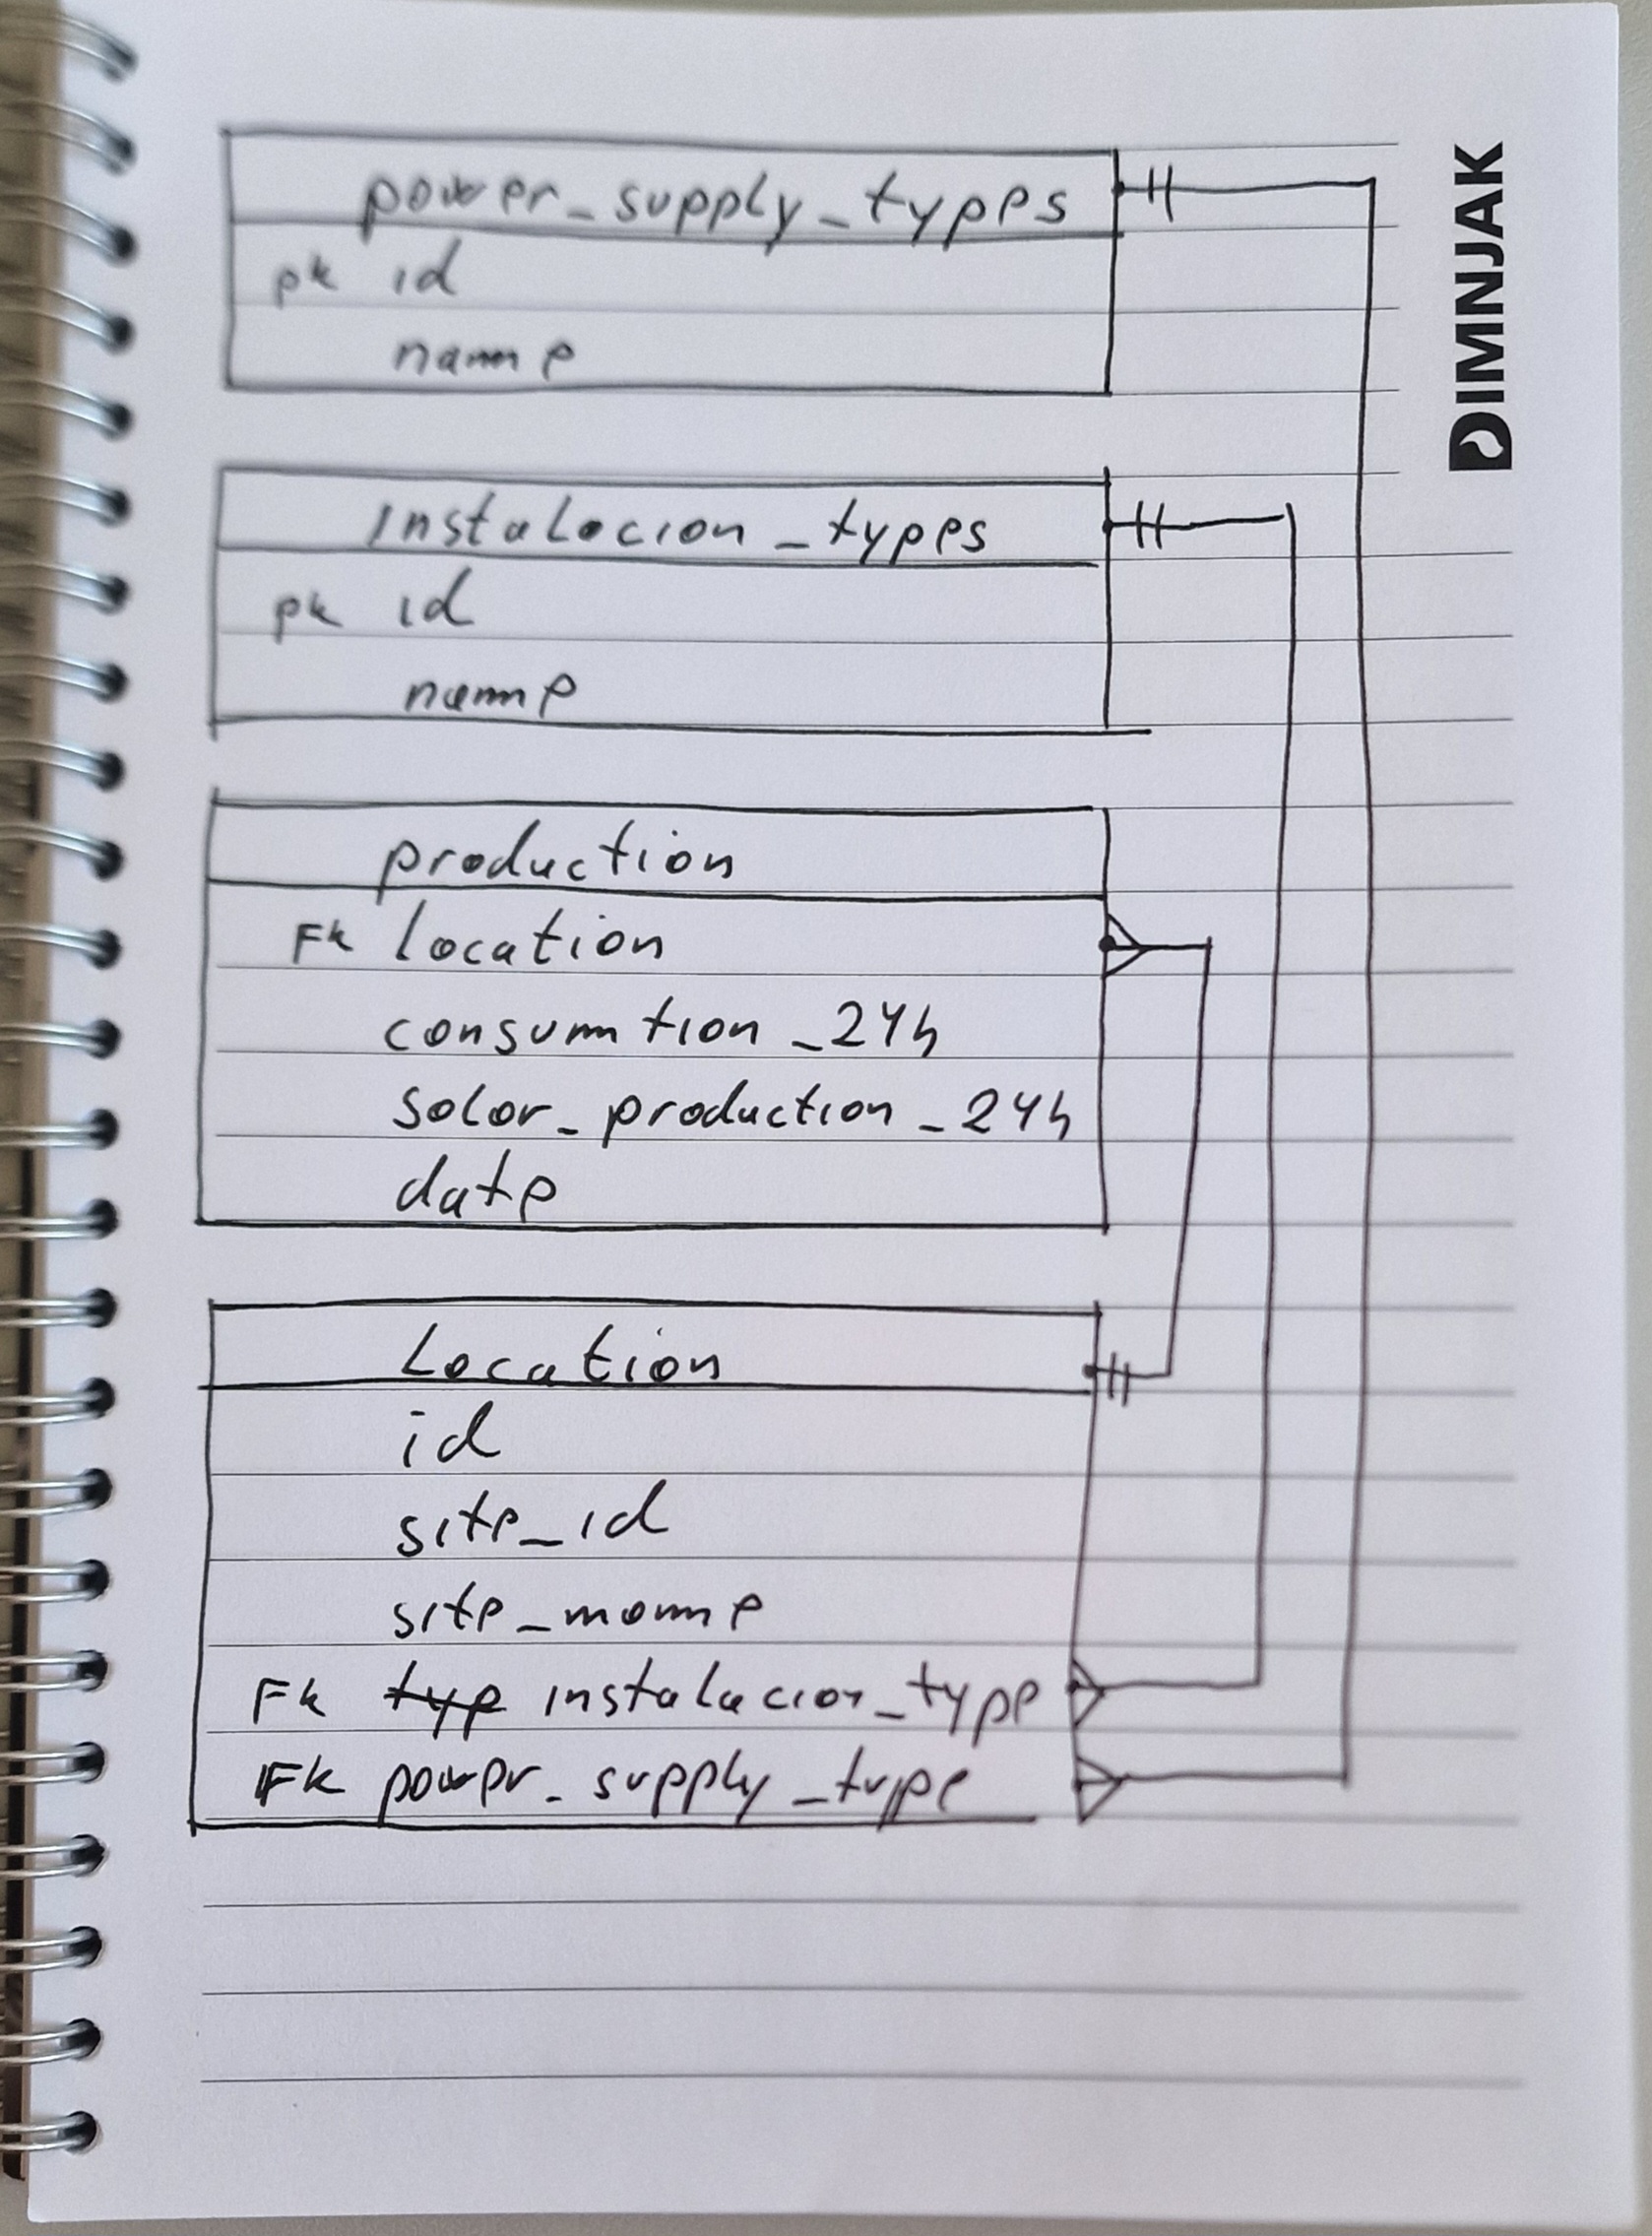 power_supply_types
pk id
name
Instalacion_types
pk id
name
production
Fk location
consumtion_24h
solar_production_24h
date
Location
id
site_id
site_name
Fk typ instalacion_type
Fk power_supply_type
DIMNJAK